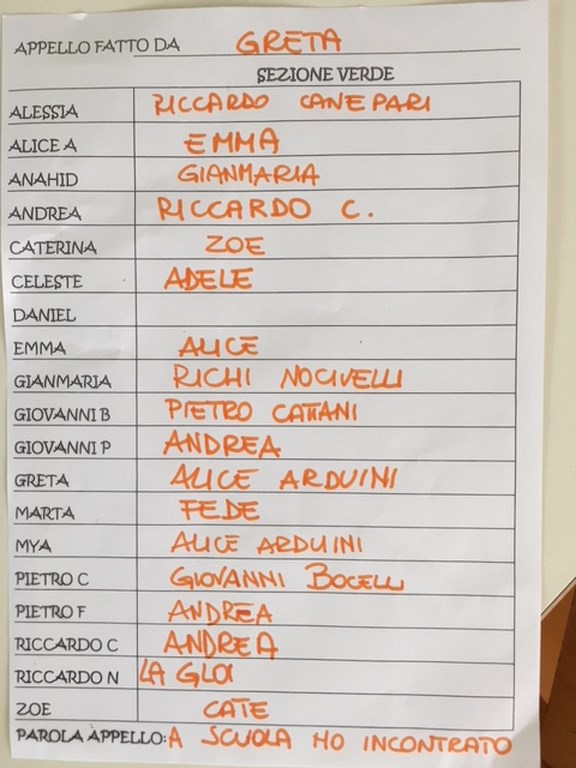 APPELLO FATTO DA GRETA
SEZIONE VERDE
ALESSIA RICCARDO CANEPARI
ALICE A EMMA
ANAHID GIANMARIA
ANDREA RICCARDO C.
CATERINA ZOE
CELESTE ADELE
DANIEL
EMMA ALICE
GIANMARIA RICHI NOCIVELLI
GIOVANNI B PIETRO CATTANI
GIOVANNI P ANDREA
GRETA ALICE ARDUINI
MARTA FEDE
MYA ALICE ARDUINI
PIETRO C GIOVANNI BOCELLI
PIETRO F ANDREA
RICCARDO C ANDREA
RICCARDO N LA GLOI
ZOE CATE
PAROLA APPELLO: A SCUOLA HO INCONTRATO